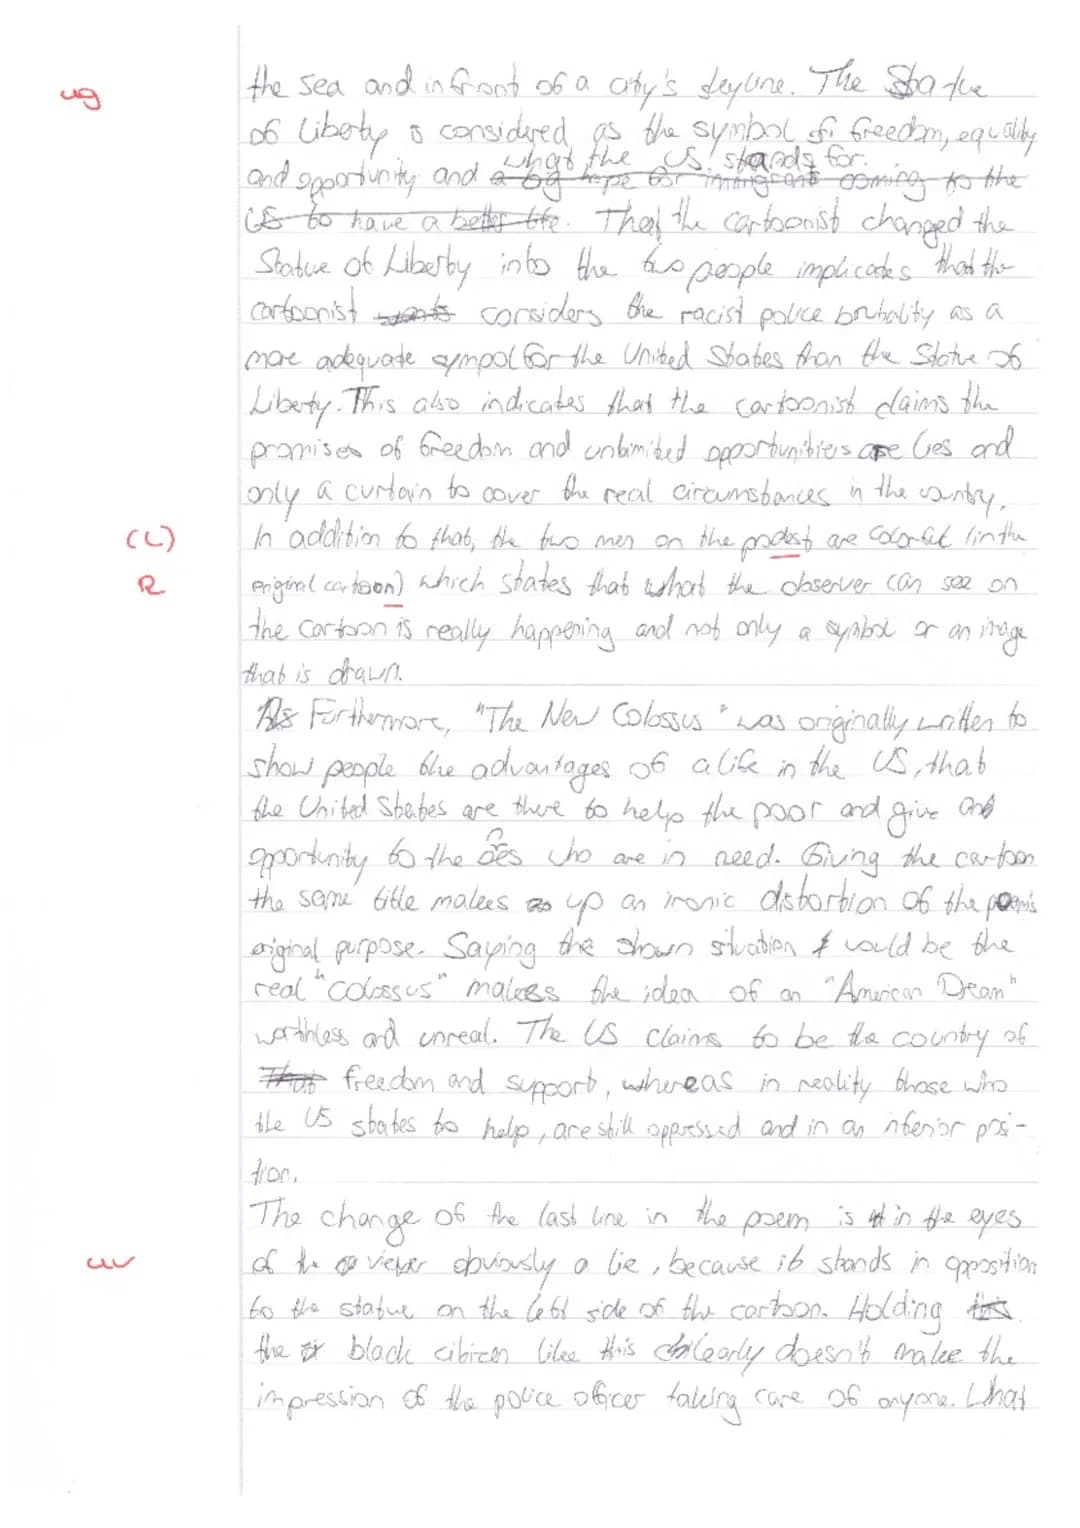 ug
the sea and in front of a city's skyline. The Statue
of Liberty is considered as the symbol of freedom, equality
and opportunity and what the US stands for.
a big hope for immigrants coming to the
US to have a better life. That the cartoonist changed the
Statue of Liberty into the two people implicates that the
cartoonist considers the racist police brutality as a
more adequate sympol for the United States than the Statue of
Liberty. This also indicates that the cartoonist claims the
promises of freedom and unlimited opportunitiers are lies and
only a curtain to cover the real circumstances in the country.
(L) In addition to that, the two men on the podest are colorful (in the
R original cartoon) which states that what the observer can see on
the cartoon is really happening and not only a symbol or an image
that is drawn.
Furthermore, "The New Colossus" was originally written to
show people the advantages of a life in the US, that
the United States are there to help the poor and give and
opportunity to the who are in need. Giving the cartoon
the same title makes up an ironic distortion of the poem's
original purpose. Saying the shown situation would be the
real "colossus" makes the idea of an "American Dream"
worthless and unreal. The US claims to be the country of
That freedom and support, whereas in reality those who
the US states to help, are still oppressed and in an inferior posi-
tion.
The change of the last line in the poem is in the eyes
of the viewer obviously a lie, because it stands in opposition
to the statue on the left side of the cartoon. Holding this
the black citizen like this clearly doesn't make the
impression of the police officer taking care of anyone. What